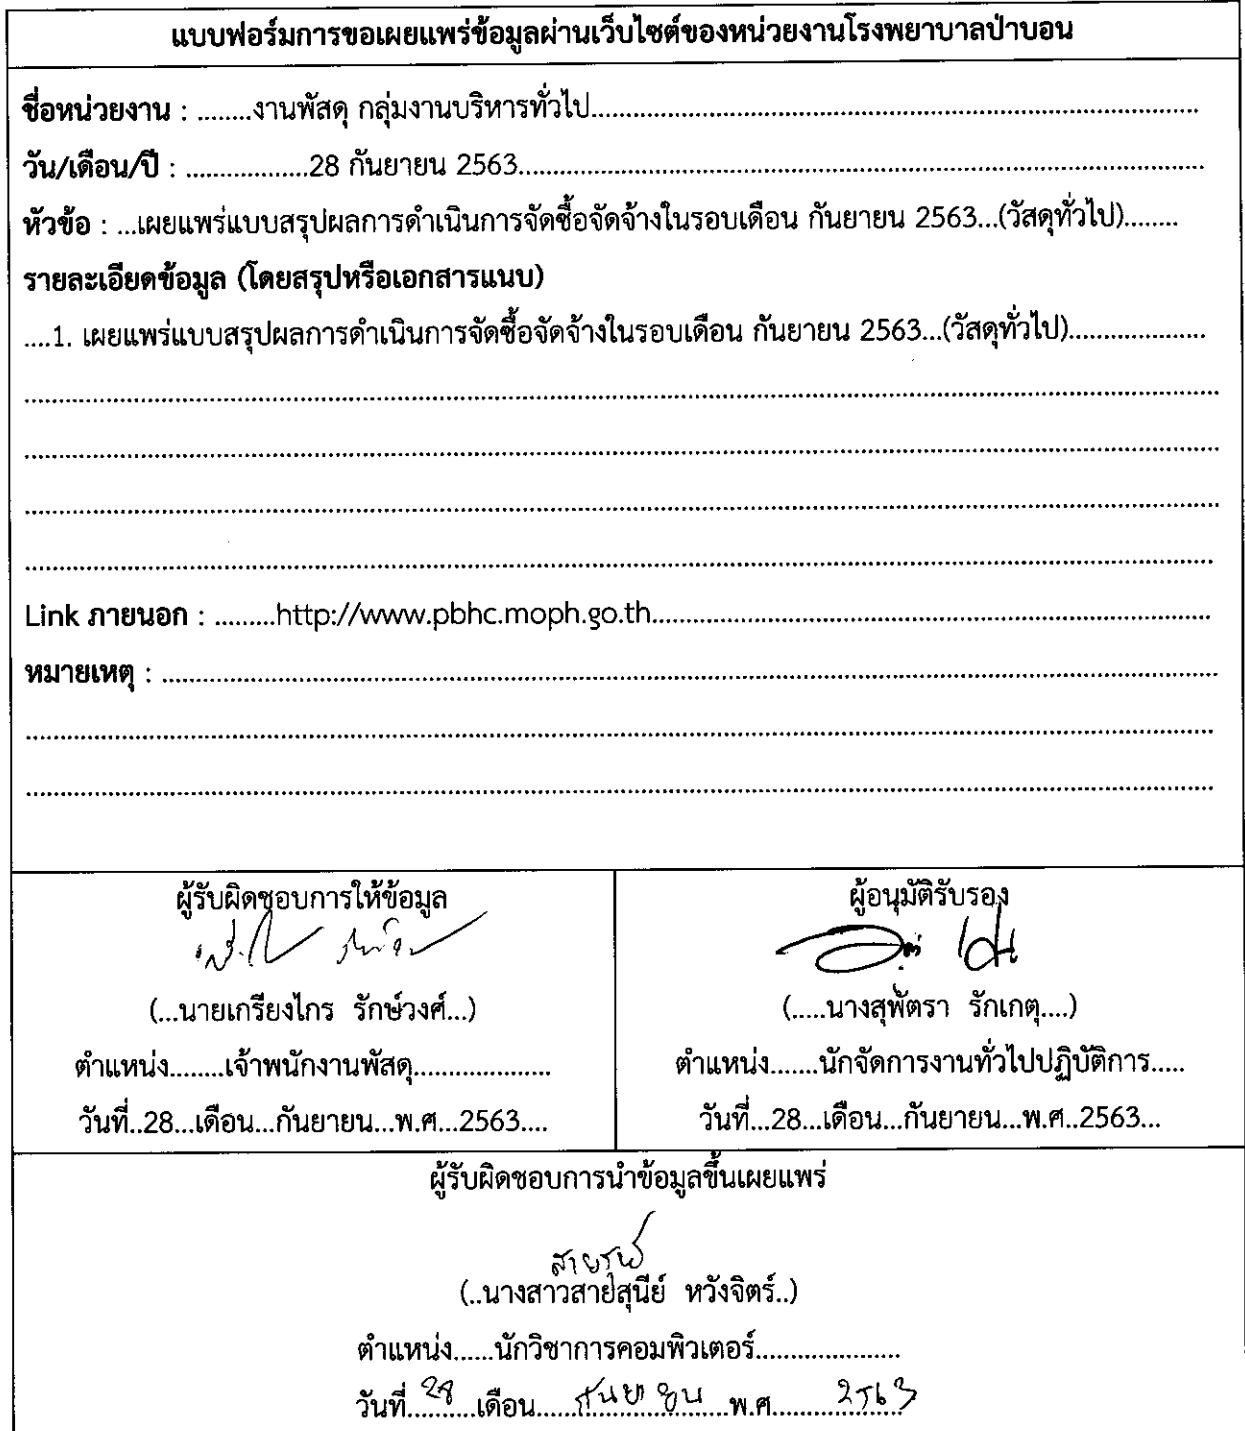 แบบฟอร์มการขอเผยแพร่ข้อมูลผ่านเว็บไซต์ของหน่วยงานโรงพยาบาลป่าบอน
ชื่อหน่วยงาน : ........งานพัสดุ กลุ่มงานบริหารทั่วไป........
วัน/เดือน/ปี : ..................28 กันยายน 2563........
หัวข้อ : ...เผยแพร่แบบสรุปผลการดำเนินการจัดซื้อจัดจ้างในรอบเดือน กันยายน 2563...(วัสดุทั่วไป)........
รายละเอียดข้อมูล (โดยสรุปหรือเอกสารแนบ)
....1. เผยแพร่แบบสรุปผลการดำเนินการจัดซื้อจัดจ้างในรอบเดือน กันยายน 2563...(วัสดุทั่วไป)....................
Link ภายนอก : .........http://www.pbhc.moph.go.th........
หมายเหตุ : ........
ผู้รับผิดชอบการให้ข้อมูล
(...นายเกรียงไกร รักษ์วงศ์...)
ตำแหน่ง........เจ้าพนักงานพัสดุ....................
วันที่..28...เดือน...กันยายน...พ.ศ...2563....
ผู้อนุมัติรับรอง
(.....นางสุพัตรา รักเกตุ....)
ตำแหน่ง.......นักจัดการงานทั่วไปปฏิบัติการ.....
วันที่...28...เดือน...กันยายน...พ.ศ..2563...
ผู้รับผิดชอบการนำข้อมูลขึ้นเผยแพร่
(..นางสาวสายสุนีย์ หวังจิตร์..)
ตำแหน่ง......นักวิชาการคอมพิวเตอร์.....................
วันที่ 28 เดือน กันยายน พ.ศ. 2563